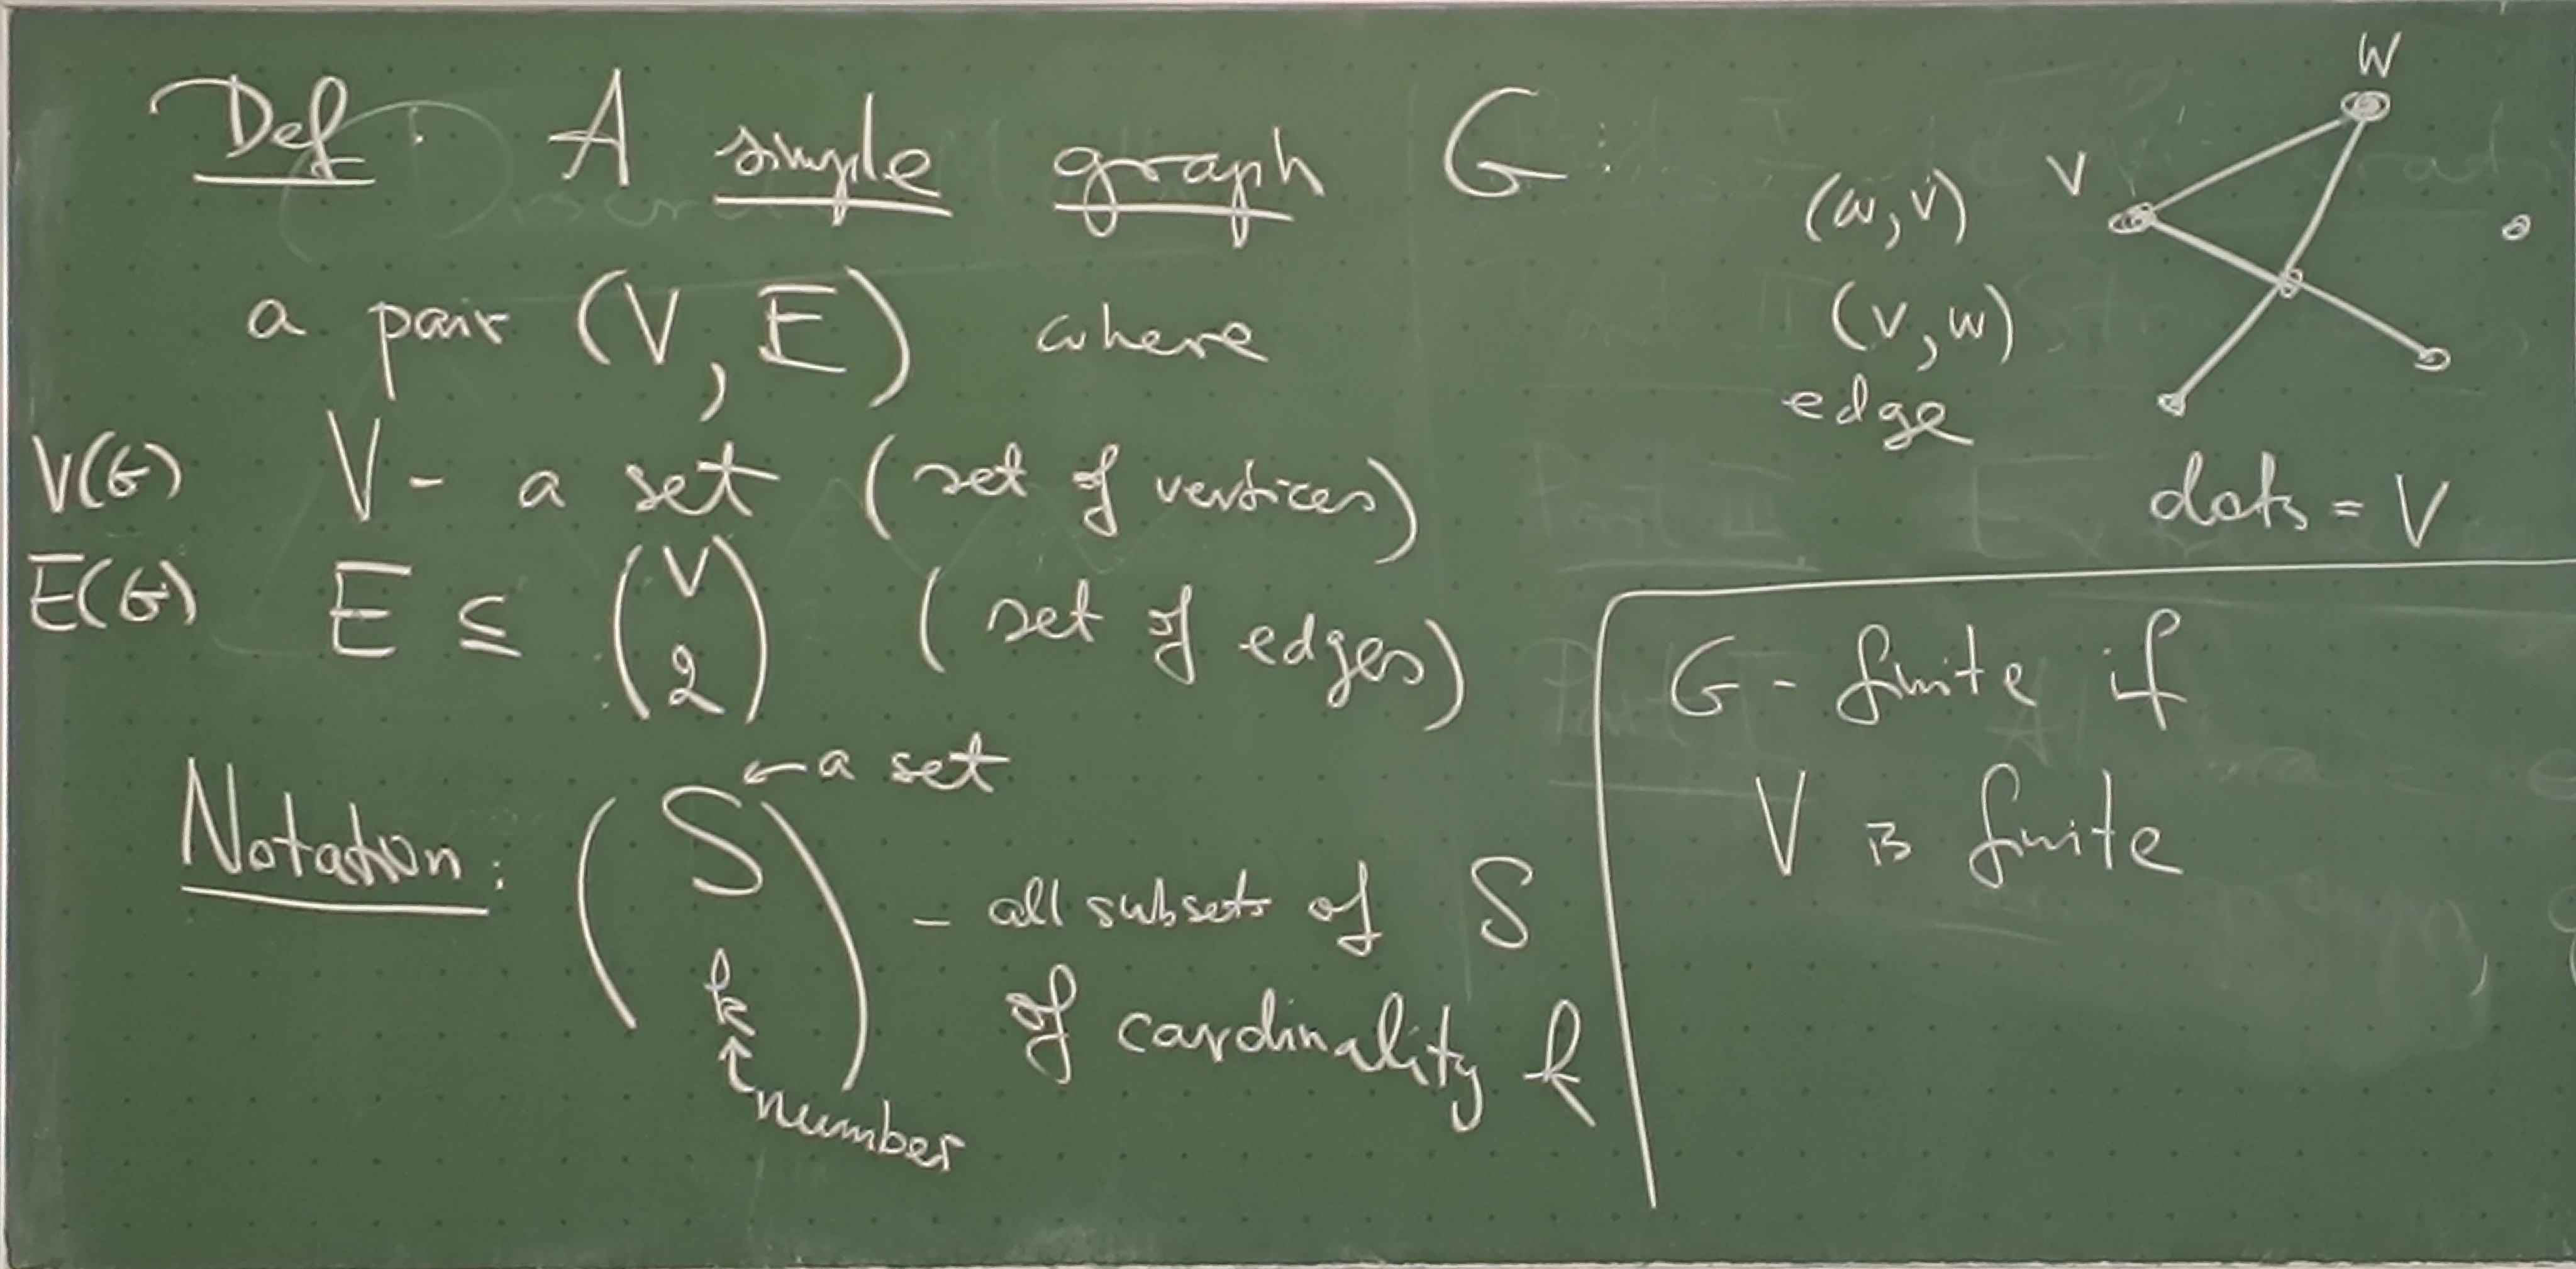 Def: A simple graph G:
a pair (V, E) where
V(G) V - a set (set of vertices)
E(G) E ⊆ (V 2) (set of edges)
Notation: (S k) - all subsets of S
← a set
of cardinality k
↑ number
W
V
(w, v)
(v, w)
edge
dots = V
G - finite if
V is finite